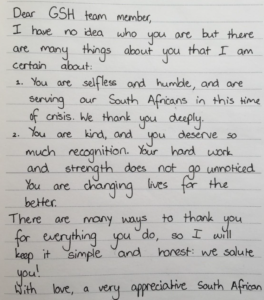 Dear GSH team member,
I have no idea who you are but there
are many things about you that I am
certain about:
1. You are selfless and humble, and are
serving our South Africans in this time
of crisis. We thank you deeply.
2. You are kind, and you deserve so
much recognition. Your hard work
and strength does not go unnoticed
You are changing lives for the
better.
There are many ways to thank you
for everything you do, so I will
keep it simple and honest: we salute
you!
With love, a very appreciative South African